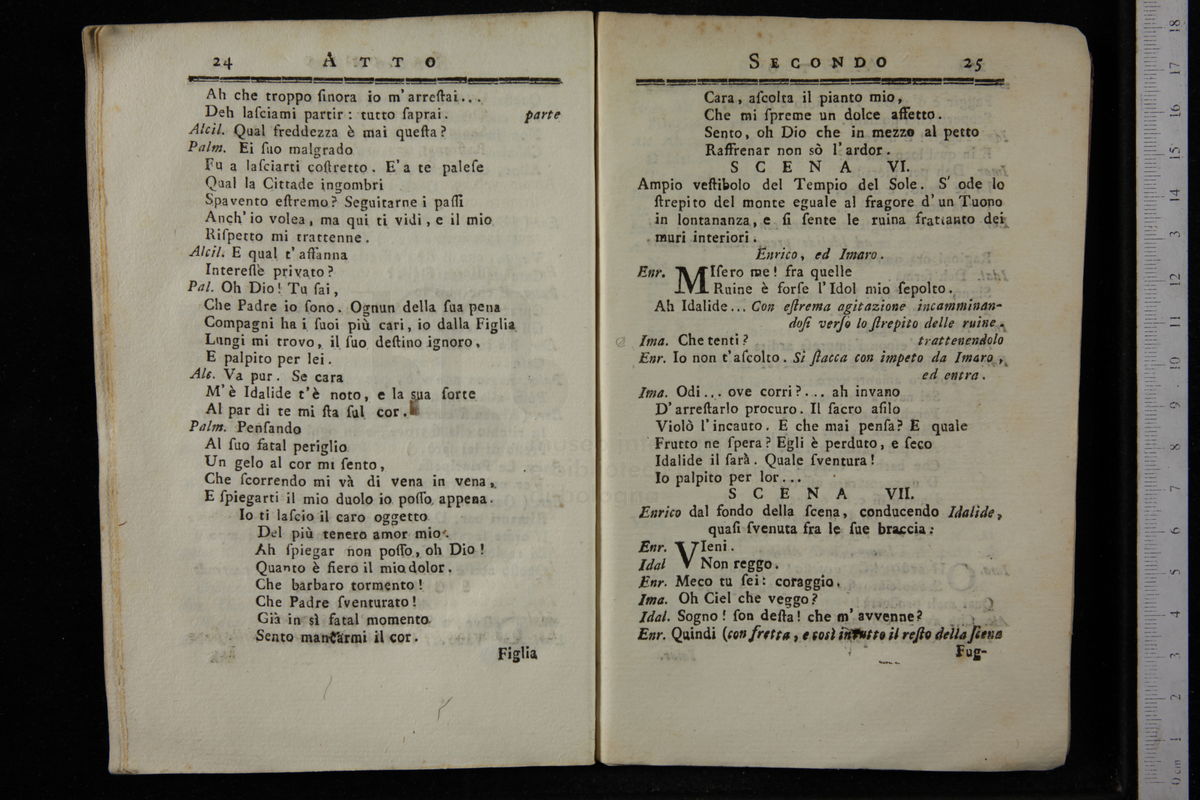 24 ATTO
Ah che troppo ſinora io m'arreſtai...
Deh laſciami partir: tutto ſaprai. parte
Alcil. Qual freddezza è mai queſta?
Palm. Ei ſuo malgrado
Fu a laſciarti coſtretto. E' a te paleſe
Qual la Cittade ingombri
Spavento eſtremo? Seguitarne i paſſi
Anch'io volea, ma qui ti vidi, e il mio
Riſpetto mi trattenne.
Alcil. E qual t'affanna
Intereſſe privato?
Pal. Oh Dio! Tu ſai,
Che Padre io ſono. Ognun della ſua pena
Compagni ha i ſuoi più cari, io dalla Figlia
Lungi mi trovo, il ſuo deſtino ignoro,
E palpito per lei.
Alc. Va pur. Se cara
M'è Idalide t'è noto, e la sua ſorte
Al par di te mi ſta ſul cor.
Palm. Penſando
Al ſuo fatal periglio
Un gelo al cor mi ſento,
Che ſcorrendo mi và di vena in vena,
E ſpiegarti il mio duolo io poſſo appena.
Io ti laſcio il caro oggetto
Del più tenero amor mio.
Ah ſpiegar non poſſo, oh Dio!
Quanto è fiero il mio dolor.
Che barbaro tormento!
Che Padre ſventurato!
Già in sì fatal momento
Sento mancarmi il cor.
Figlia
SECONDO 25
Cara, aſcolta il pianto mio,
Che mi ſpreme un dolce affetto.
Sento, oh Dio che in mezzo al petto
Raffrenar non sò l'ardor.
SCENA VI.
Ampio veſtibolo del Tempio del Sole. S'ode lo
ſtrepito del monte eguale al fragore d'un Tuono
in lontananza, e ſi ſente le ruina frattanto dei
muri interiori.
Enrico, ed Imaro.
Enr. MIſero me! fra quelle
Ruine è forſe l'Idol mio ſepolto.
Ah Idalide... Con eſtrema agitazione incamminan-
doſi verſo lo ſtrepito delle ruine.
Ima. Che tenti? trattenendolo
Enr. Io non t'aſcolto. Si ſtacca con impeto da Imaro,
ed entra.
Ima. Odi... ove corri?... ah invano
D'arreſtarlo procuro. Il ſacro aſilo
Violò l'incauto. E che mai penſa? E quale
Frutto ne ſpera? Egli è perduto, e ſeco
Idalide il ſarà. Quale ſventura!
Io palpito per lor...
SCENA VII.
Enrico dal fondo della ſcena, conducendo Idalide,
quaſi ſvenuta fra le ſue braccia:
Enr. VIeni.
Idal Non reggo.
Enr. Meco tu ſei: coraggio.
Ima. Oh Ciel che veggo?
Idal. Sogno! ſon deſta! che m'avvenne?
Enr. Quindi (con fretta, e così in tutto il reſto della ſcena
Fug-